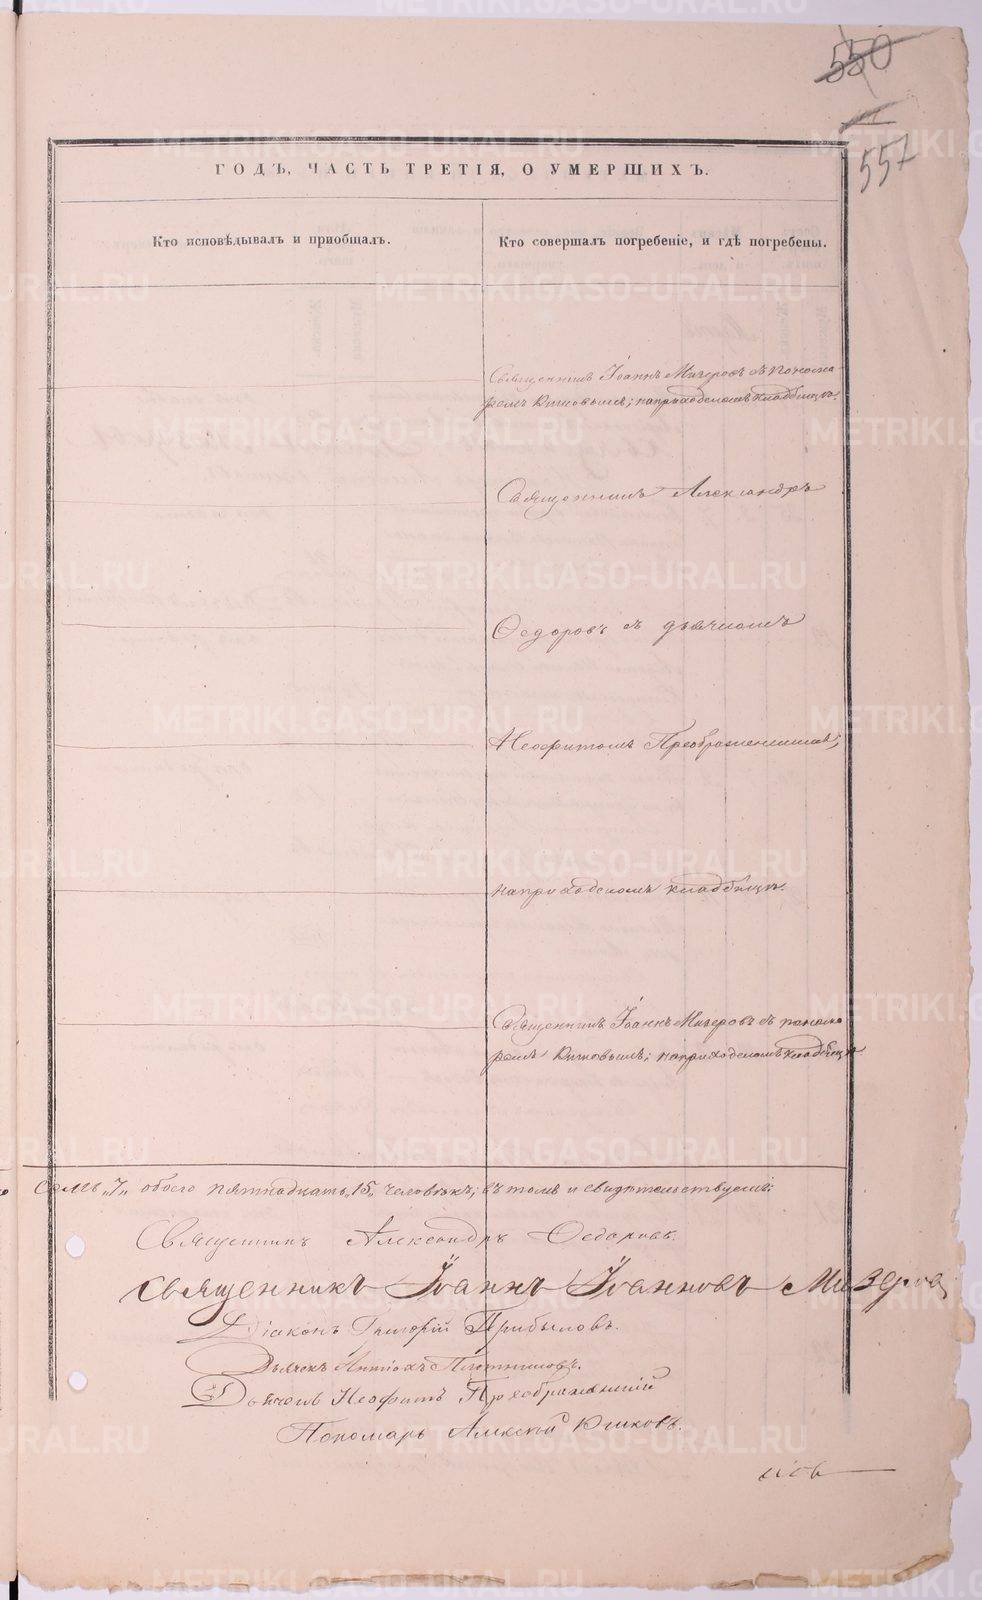 550
557
ГОДЪ, ЧАСТЬ ТРЕТІЯ, О УМЕРШИХЪ.
Кто исповѣдывалъ и пріобщалъ.
Кто совершалъ погребеніе, и гдѣ погребены.
Священникъ Іоаннъ Мизеровъ съ понома-
ремъ Киковымъ; на приходскомъ кладбищѣ.
Священникъ Александръ
Ѳедоровъ съ дьячкомъ
Неофитомъ Преображенскимъ;
на приходскомъ кладбищѣ.
Священникъ Іоаннъ Мизеровъ съ понома
ремъ Киковымъ; на приходскомъ кладбищѣ
семь „7„ обоего пятнадцать „15„ человѣкъ; въ томъ и свидѣтельствуемъ:
Священникъ Александръ Ѳедоровъ.
Священникъ Іоаннъ Іоанновъ Мизеровъ
Діаконъ Григорій Прибыловъ.
Дьячекъ Антіохъ Плотниковъ.
Дьячекъ Неофитъ Преображенскій
Пономарь Алексѣй Киковъ.
METRIKI.GASO-URAL.RU